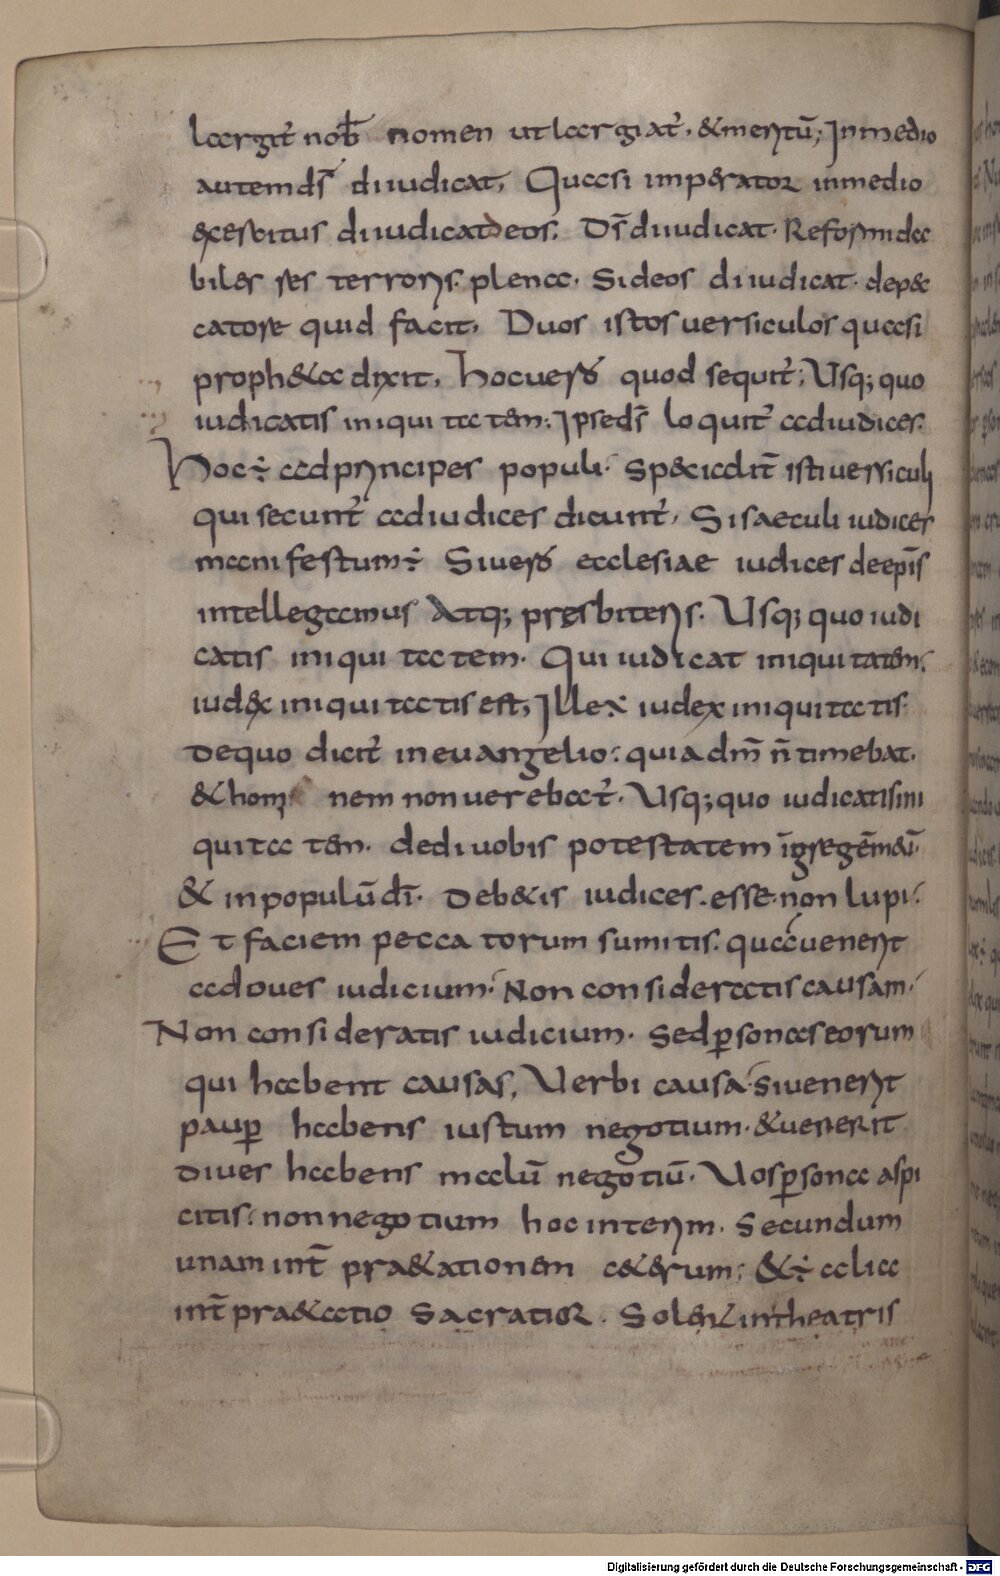 largit̄ nob̄ nomen ut largiat̄. & meritū; In medio
autem ds̄ diiudicat, Quasi imperator in medio
exercitus diiudicat deos. Ds̄ diiudicat. Reformida
biler res terroris. plena. Si deos diiudicat. de pec
catore quid facit, Duos istos uersiculos quasi
proph&a dixit, Hoc uero quod sequit̄; Usq; quo
iudicatis iniquitatem; Ipse ds̄ loquit̄ ad iudices.
Hoc ÷ ad principes populi. Speciālit̄ isti uersiculi
qui secunt̄ ad iudices dicunt̄, Si saeculi iudices
manifestum ÷ Si uero ecclesiae iudices de ep̄is
intellegamus Atq; presbiteris. Usq; quo iudi
catis iniquitatem. Qui iudicat iniquitatem.
iudex iniquitatis est, Ille ÷ iudex iniquitatis.
De quo dicit̄ in euangelio: quia dm̄ n̄ timebat.
& homi nem non uerebat̄. Usq; quo iudicatis ini
quitatem. dedi uobis potestatem īgregēmēī
& in populū dī. Deb&is iudices. esse. non lupi.
Et faciem peccatorum sumitis. qua uenerit
ad oues iudicium. Non consideratis causam.
Non consideratis iudicium. Sed p̱sonas eorum
qui habent causas, Verbi causa si uenerit
paup̱ habens iustum negotium. & uenerit
diues habens malū negotiū. Vos p̱sona aspi
citis. non negotium hoc interim. Secundum
unam int̄ pr&ationem c&erum; & ÷ alia
int̄pra&atio Sacratior. Solent in theatris
Digitalisierung gefördert durch die Deutsche Forschungsgemeinschaft - DFG